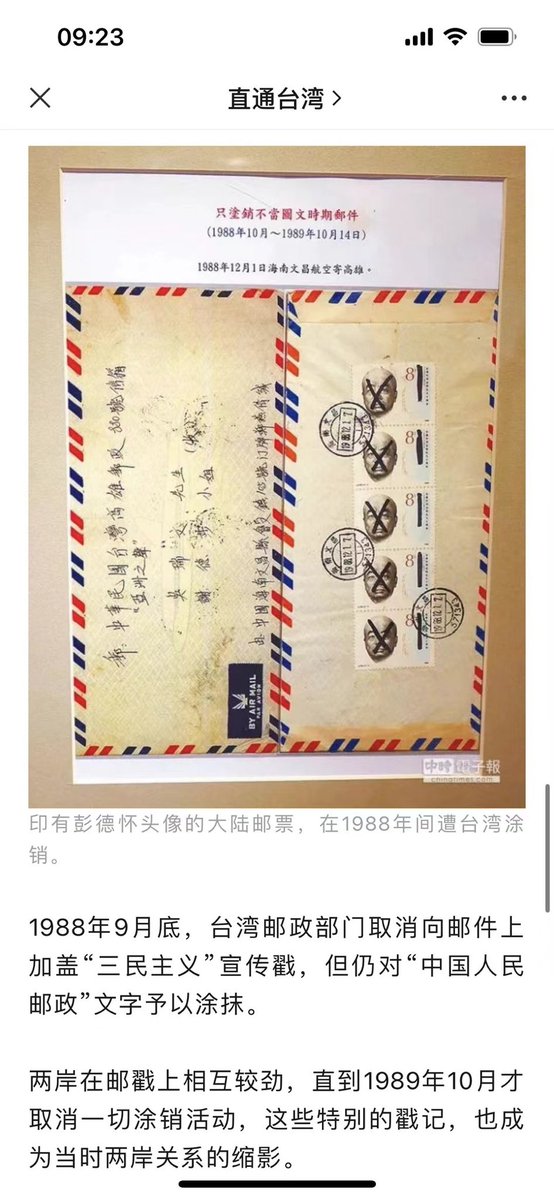 09:23
直通台湾
只塗銷不當圖文時期郵件
(1988年10月～1989年10月14日)
1988年12月1日海南文昌航空寄高雄。
郵:中華民國台灣高雄郵政
"亞洲之聲"
先生
小姐
BY AIR MAIL
PAR AVION
8
8
8
8
8
中時電子報
chinatimes.com
印有彭德怀头像的大陆邮票，在1988年间遭台湾涂
销。
1988年9月底，台湾邮政部门取消向邮件上
加盖“三民主义”宣传戳，但仍对“中国人民
邮政”文字予以涂抹。
两岸在邮戳上相互较劲，直到1989年10月才
取消一切涂销活动，这些特别的戳记，也成
为当时两岸关系的缩影。